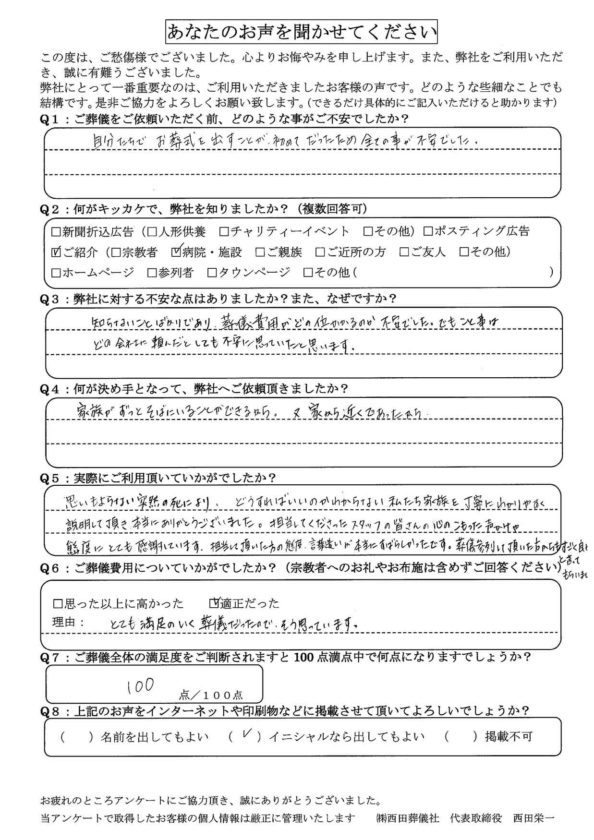 あなたのお声を聞かせてください
この度は、ご愁傷様でございました。心よりお悔やみを申し上げます。また、弊社をご利用いただ
き、誠に有難うございました。
弊社にとって一番重要なのは、ご利用いただきましたお客様の声です。どのような些細なことでも
結構です。是非ご協力をよろしくお願い致します。（できるだけ具体的にご記入いただけると助かります）
Q１：ご葬儀をご依頼いただく前、どのような事がご不安でしたか？
自分たちで お葬式を出すことが 初めてだったため全ての事が不安でした。
Q２：何がキッカケで、弊社を知りましたか？（複数回答可）
□新聞折込広告（□人形供養 □チャリティーイベント □その他）□ポスティング広告
☑ご紹介（□宗教者 ☑病院・施設 □ご親族 □ご近所の方 □ご友人 □その他）
□ホームページ □参列者 □タウンページ □その他（ ）
Q３：弊社に対する不安な点はありましたか？また、なぜですか？
知らないことばかりであり、葬儀費用がどの位かかるのか 不安でした。でもこと事は
どの会社に頼んだとしても不安に思っていたと思います。
Q４：何が決め手となって、弊社へご依頼頂きましたか？
家族がずっとそばにいることができるから。又家から近くであったから
Q５：実際にご利用頂いていかがでしたか？
思いもよらない突然の死により、どうすればいいのかわからない私たち家族を丁寧にわかりやすく
説明して頂き本当にありがとうございました。担当してくださったスタッフの皆さんの心のこもった声かけや
態度にとても感謝しています。担当して頂いた方の態度、言葉遣いが本当にすばらしかったです。葬儀参列して頂いた方からもすごく良い
と言って
もらいました
Q６：ご葬儀費用についていかがでしたか？（宗教者へのお礼やお布施は含めずご回答ください）
□思った以上に高かった ☑適正だった
理由： とても満足のいく葬儀だったので、そう思っています。
Q７：ご葬儀全体の満足度をご判断されますと 100 点満点中で何点になりますでしょうか？
100 点／100点
Q８：上記のお声をインターネットや印刷物などに掲載させて頂いてよろしいでしょうか？
（ ）名前を出してもよい （✓）イニシャルなら出してもよい （ ）掲載不可
お疲れのところアンケートにご協力頂き、誠にありがとうございました。
当アンケートで取得したお客様の個人情報は厳正に管理いたします ㈱西田葬儀社 代表取締役 西田栄一